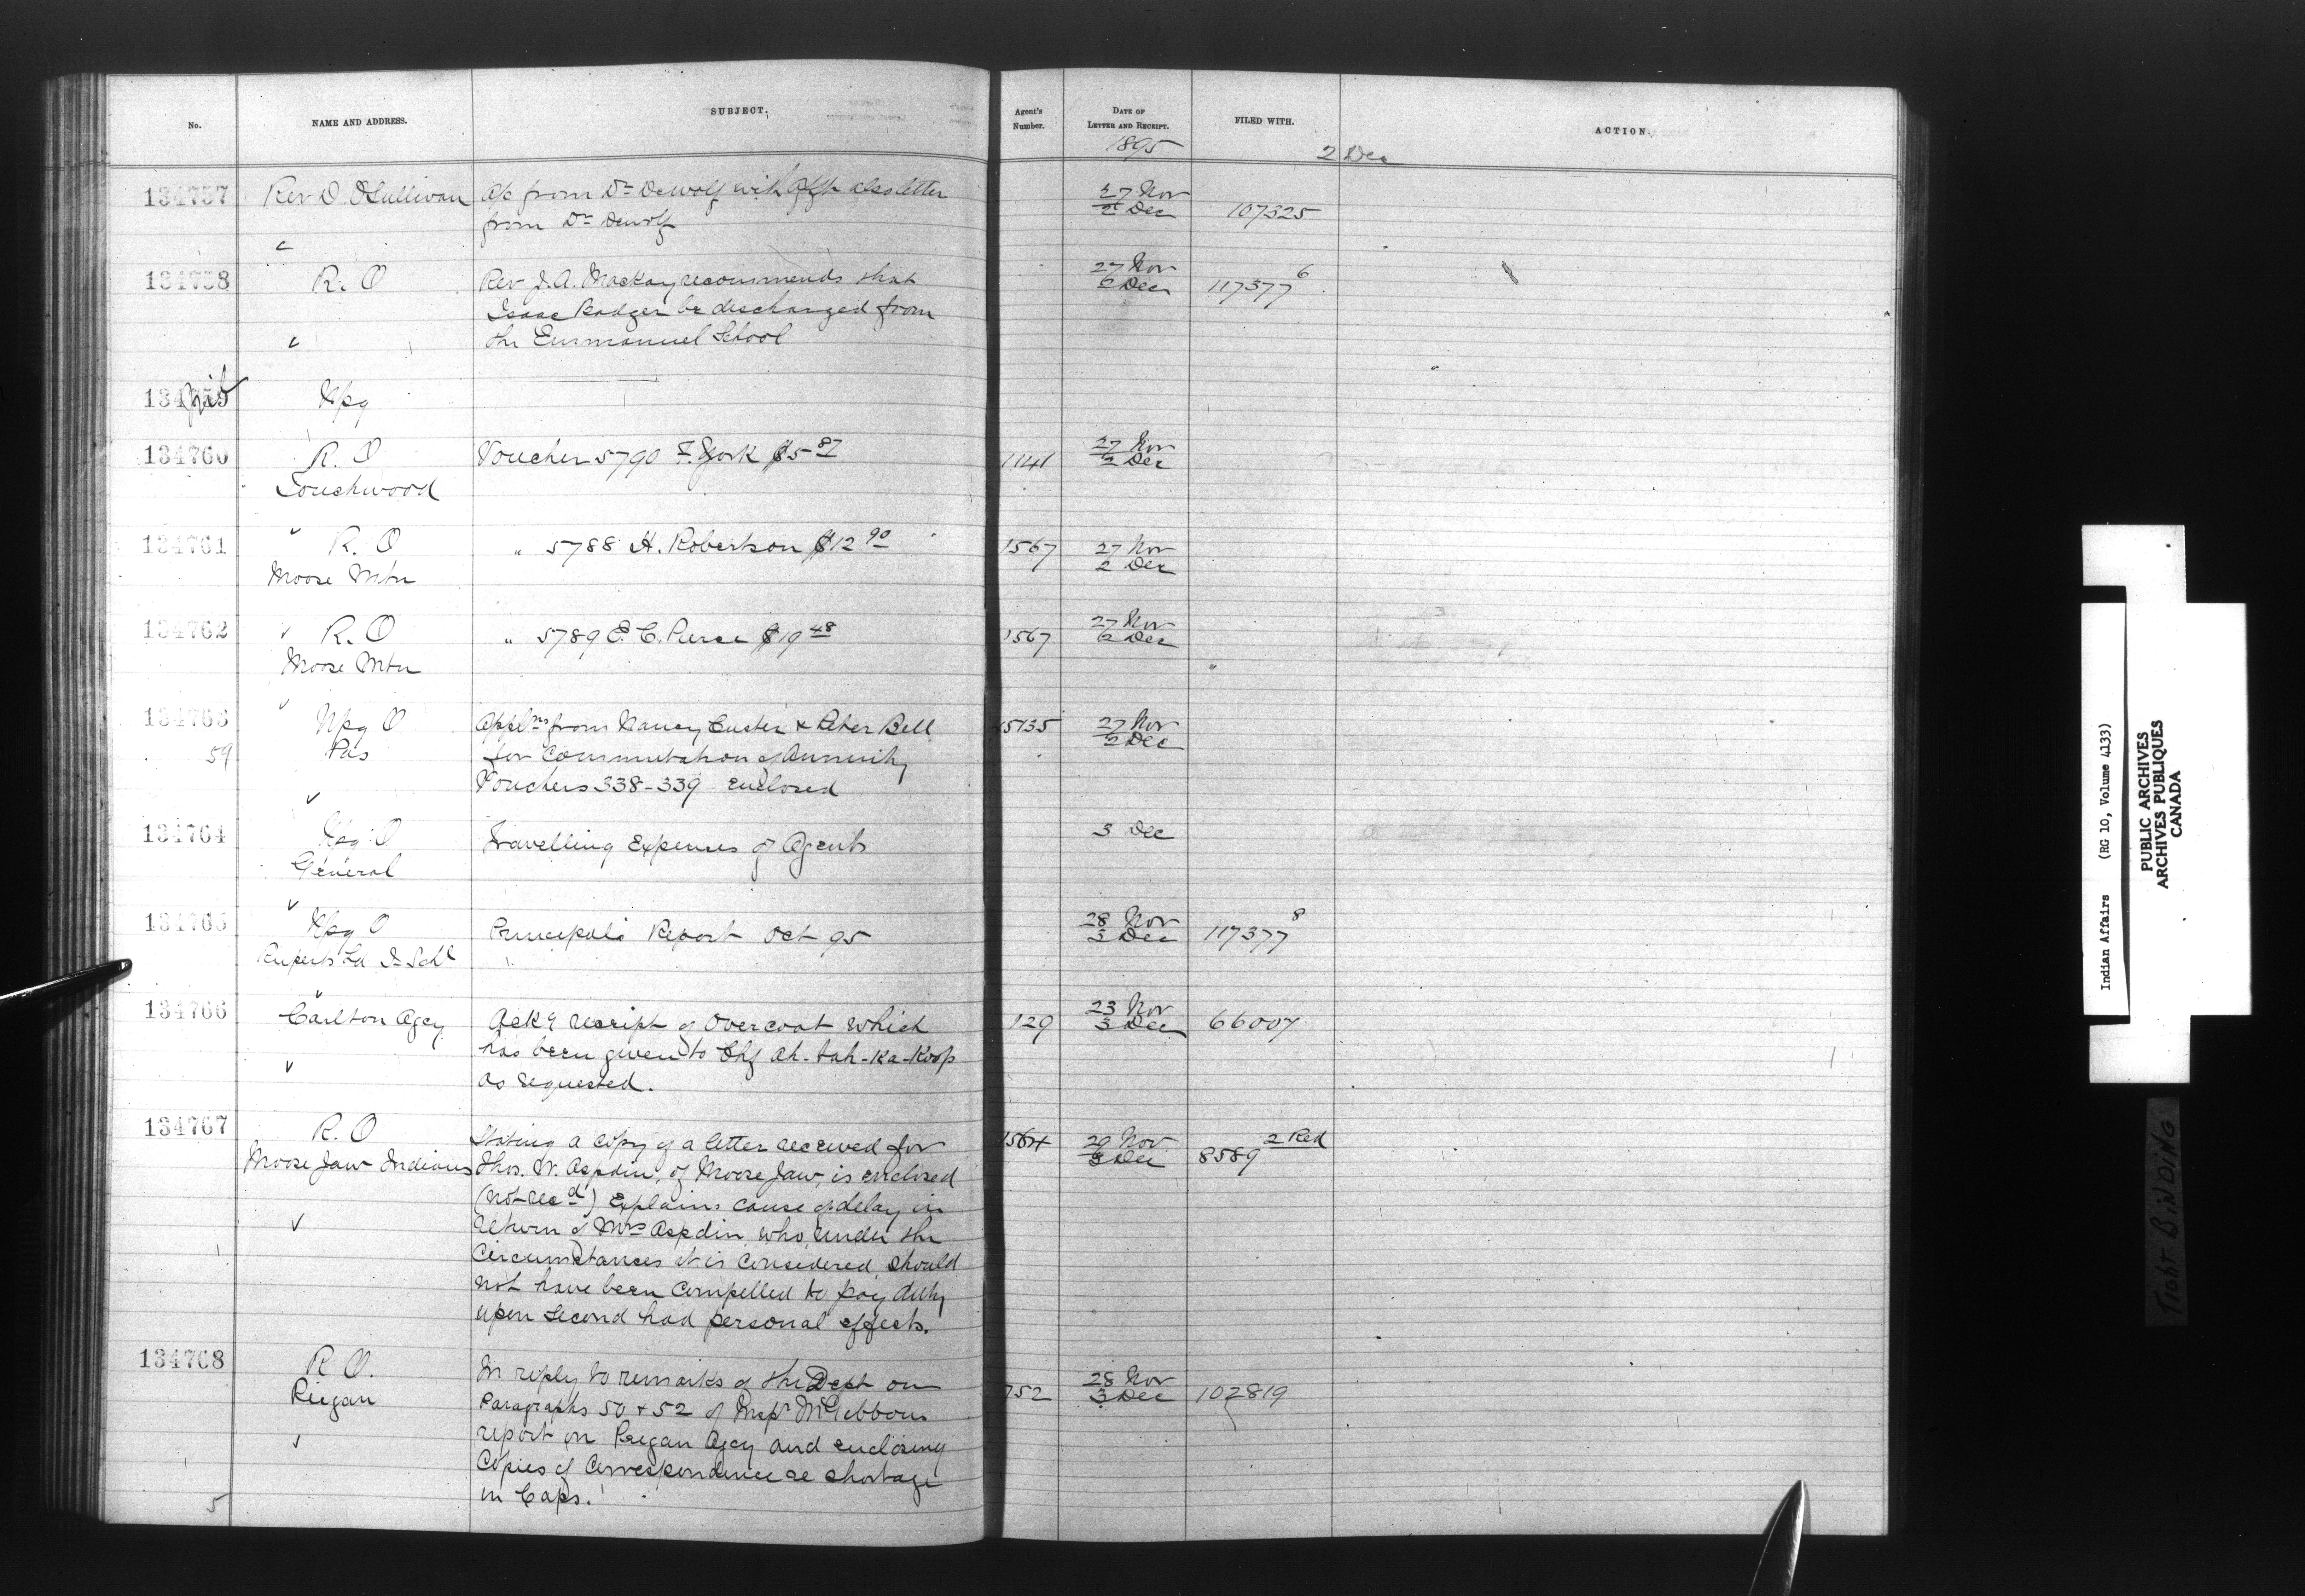 No. NAME AND ADDRESS. SUBJECT. Agent's Number. DATE OF LETTER AND RECEIPT. FILED WITH. ACTION.
1895 2 Dec
134757 Rev D. O'Sullivan a/c from Dr Dewolf with also letter 27 Nov
from Dr Dewolf 2 Dec 107325
134758 R. O Rev J. A. Mackay recommends that 27 Nov
6 Dec 117377 6
Isaac Badger be discharged from
the Emmanuel School
134759 Nil Wpg
134760 R. O Voucher 5790 F. York $5 87 1141 27 Nov
2 Dec
Touchwood
134761 R. O " 5788 H. Robertson $12 90 1567 27 Nov
Moose Mtn 2 Dec
134762 R. O " 5789 E. C. Pierce $19 48 1567 27 Nov
2 Dec
Moose Mtn
134763 Wpg O Applns from Nancy Custer & Peter Bell 5135 27 Nov
59 Pas for Commutation of Annuity 2 Dec
Vouchers 338-339 enclosed
134764 Wpg O Travelling Expenses of Agents 3 Dec
General
134765 Wpg O Principals Report Oct 95 28 Nov
3 Dec 117377 8
Ruperts Ld I. Schl
134766 Carlton Agcy Ackg receipt of Overcoat which 129 23 Nov
3 Dec 66007
has been given to Chf Ah-tah-ka-koop
as requested.
134767 R. O Stating a copy of a letter received for 1564 29 Nov 2 Red
Moose Jaw Indians Thos. W. Aspdin, of Moose Jaw, is enclosed 3 Dec 8589
(not recd) Explains cause of delay in
return of Mrs Aspdin, who, under the
circumstances it is considered, should
not have been compelled to pay duty
upon second had personal effects.
134768 R O. In reply to remarks of the Dept on 28 Nov
Piegan Paragraphs 50 & 52 of Inspr McGibbons 752 3 Dec 102819
report on Piegan Agcy and enclosing
Copies of Correspondence re shortage
in Caps.
5
Indian Affairs (RG 10, Volume 4133)
PUBLIC ARCHIVES
ARCHIVES PUBLIQUES
CANADA
TIGHT BINDING